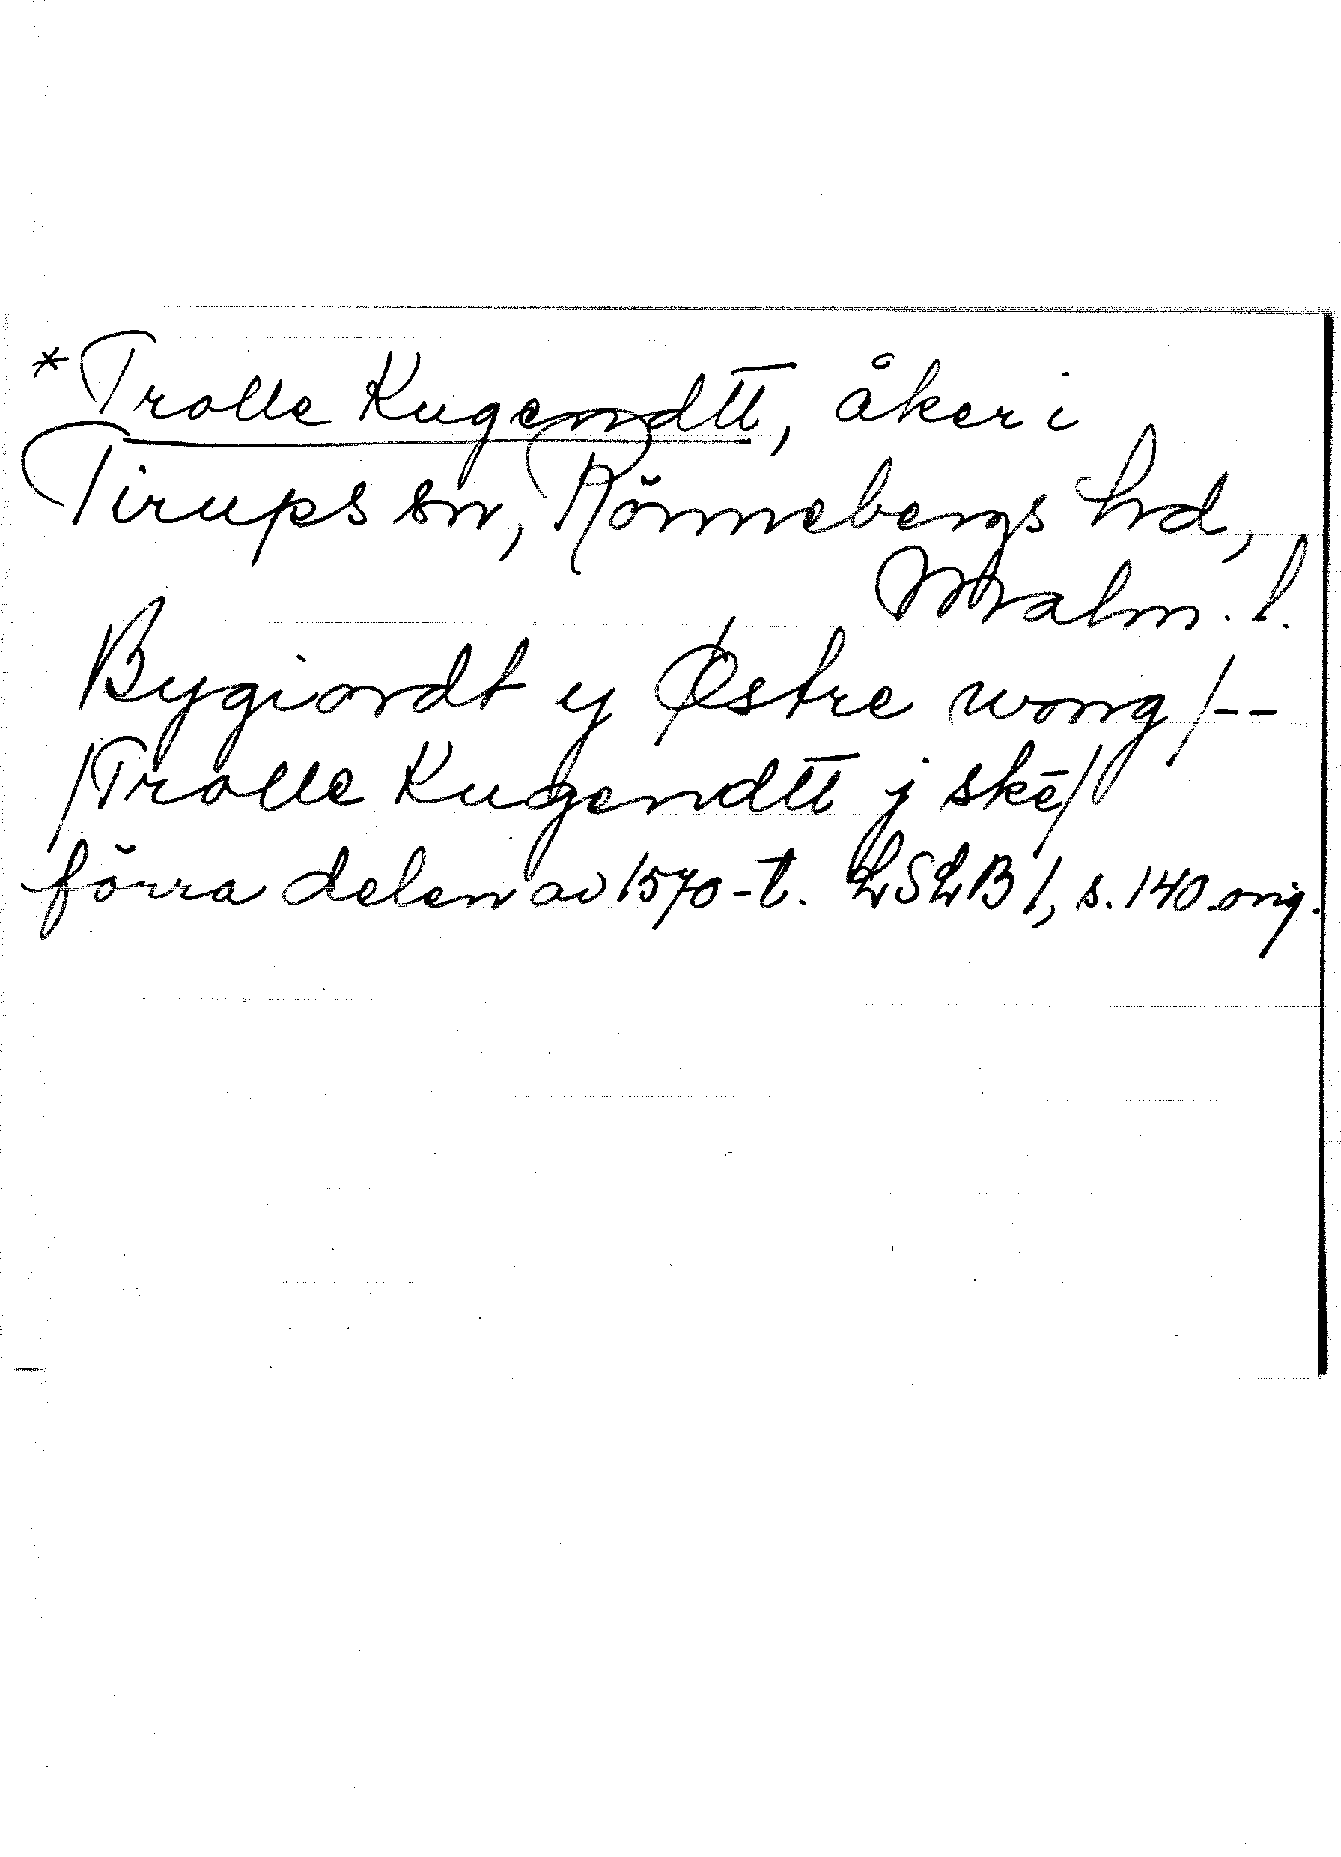 *Trolle Kugendtt, åker i
Tirups sn, Rönnebergs hd,
Malm. l.
Bygiordt y Østre wong/--
/Trolle Kugendtt j skē/
förra delen av 1570-t. LSLB 1, s. 140 orig.